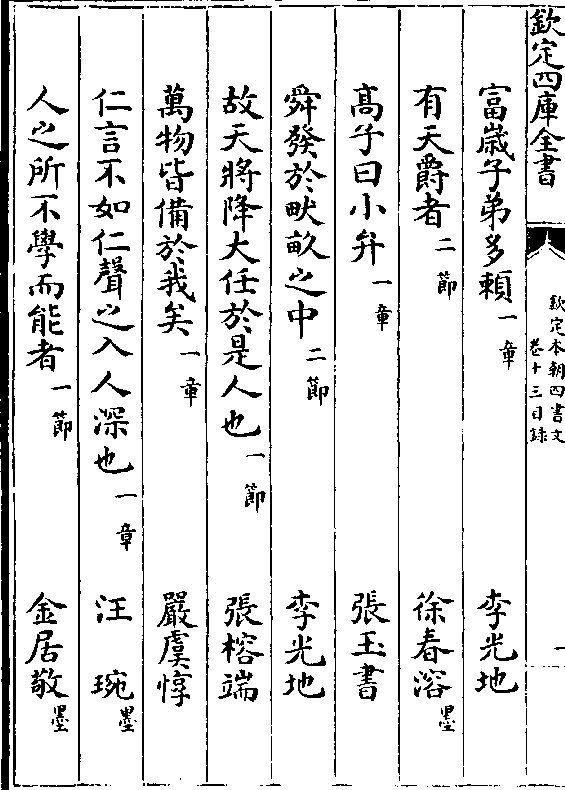 欽定四庫全書
欽定本朝四書文
卷十三目錄
一
富歲子弟多賴一章 李光地
有天爵者二節 徐春溶墨
高子曰小弁一章 張玉書
舜發於畎畝之中二節 李光地
故天將降大任於是人也一節 張榕端
萬物皆備於我矣一章 嚴虞惇
仁言不如仁聲之入人深也一章 汪琬墨
人之所不學而能者一節 金居敬墨